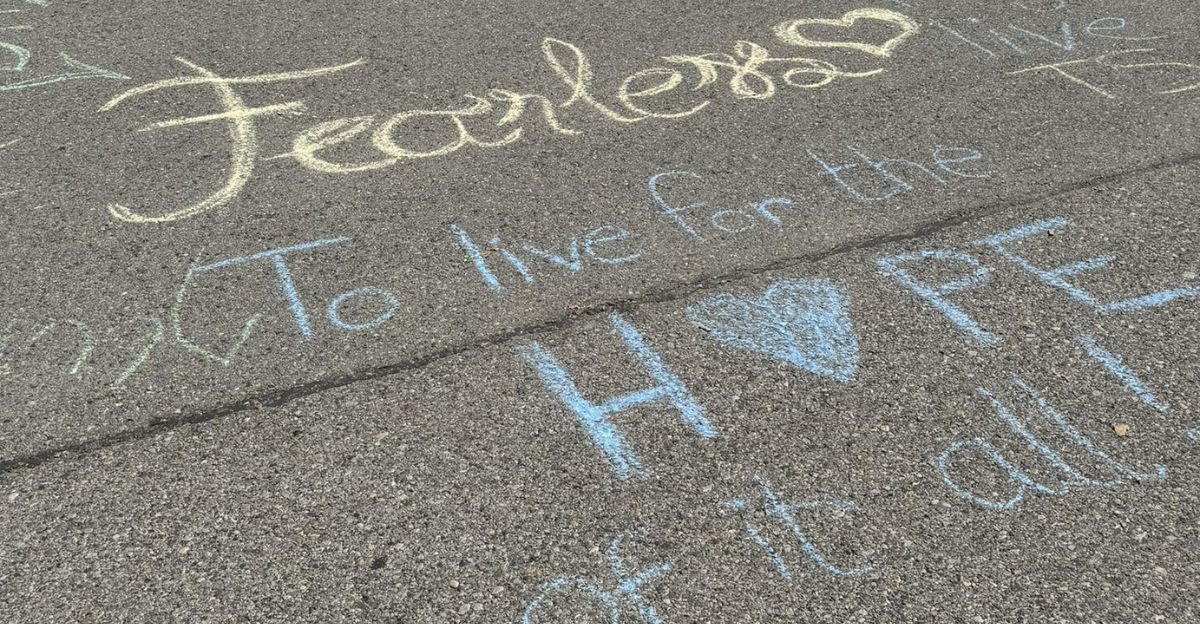 Fearless
live
TS
To live for the
HOPE
of it all!